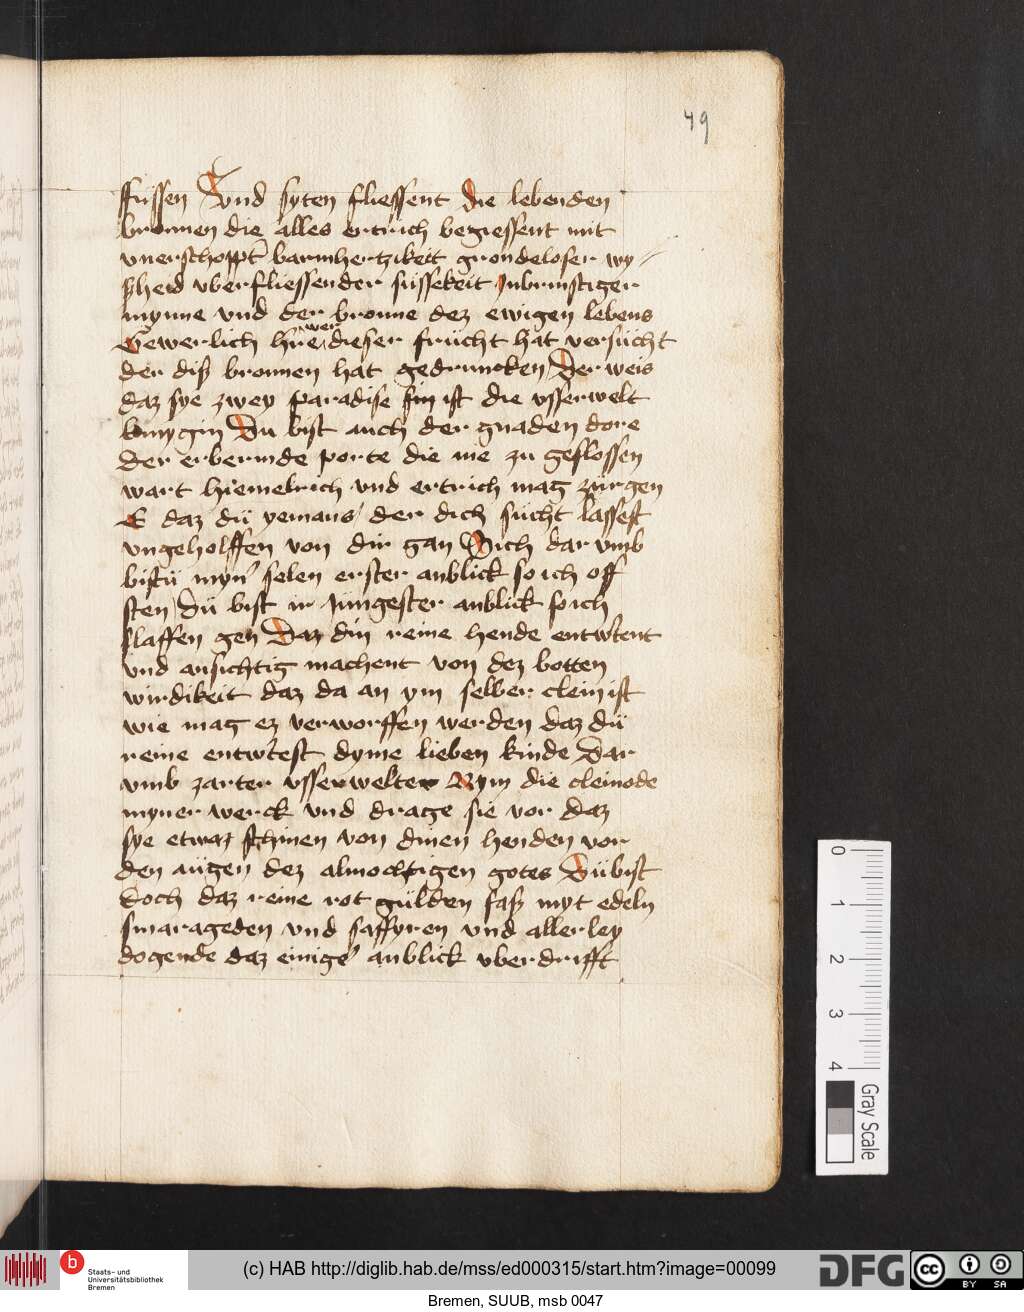 49
füssen Vnd syten fliessent die lebenden
bronnen die alles ertrich begiessent mit
vnerschoppt barmhertzikeit grondeloser wy-
ßheid vberfliessender süssekeit Jnbrinstiger
mynne vnd der bronne dez ewigen lebens
Gewerlich hre wer dieser frücht hat versücht
der diß bronnen hat gedruncken Der weis
daz sye zwey paradise sin ist die vsserwelt
konygin Du bist auch der gnaden dore
Der erbermde porte die nie zu geslossen
wart hiemelrich vnd ertrich mag zürgen
E daz dü yemans der dich sücht lassest
vngeholffen von dir gan Sich dar vmb
bistü myn selen erster anblick so ich off
sten Dü bist ir Jüngester anblick so ich
slaffen gen Daz din reine hende entwtent
vnd ansichtig machent von dez botten
wirdikeit daz da an ym selber clein ist
wie mag ez verworffen werden daz dü
reine entwtest dyme lieben kinde Dar
vmb zarter vsserwelter Nym die cleinode
myner werck vnd drage sie vor daz
sye etwaz schinen von dinen henden vor
den augen dez almochtigen gotes Dü bist
doch daz reine rot gülden faß myt edeln
smarageden vnd saffyren vnd aller ley
dogende daz einige anblick vberdrifft
0
1
2
3
4
Gray Scale
b
Staats- und
Universitätsbibliothek
Bremen
HAB
(c) HAB http://diglib.hab.de/mss/ed000315/start.htm?image=00099
DFG
cc
BY SA
Bremen, SUUB, msb 0047